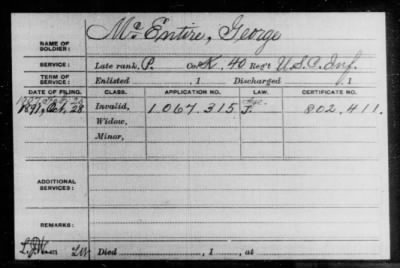 NAME OF SOLDIER: McEntire, George
SERVICE: Late rank, P. Co. K. 40 Reg't U.S.C. Inf.
TERM OF SERVICE: Enlisted , 1 Discharged , 1
DATE OF FILING. CLASS. APPLICATION NO. LAW. CERTIFICATE NO.
1891, Oct. 28 Invalid, 1.067.315 802.411.
Widow,
Minor,
ADDITIONAL SERVICES:
REMARKS:
Died , 1 , at